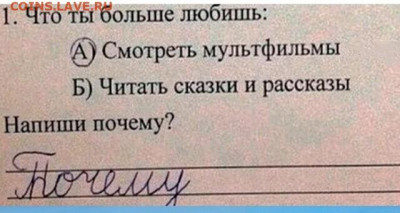 COINS.LAVE.RU
1. Что ты больше любишь:
А) Смотреть мультфильмы
Б) Читать сказки и рассказы
Напиши почему?
Почему